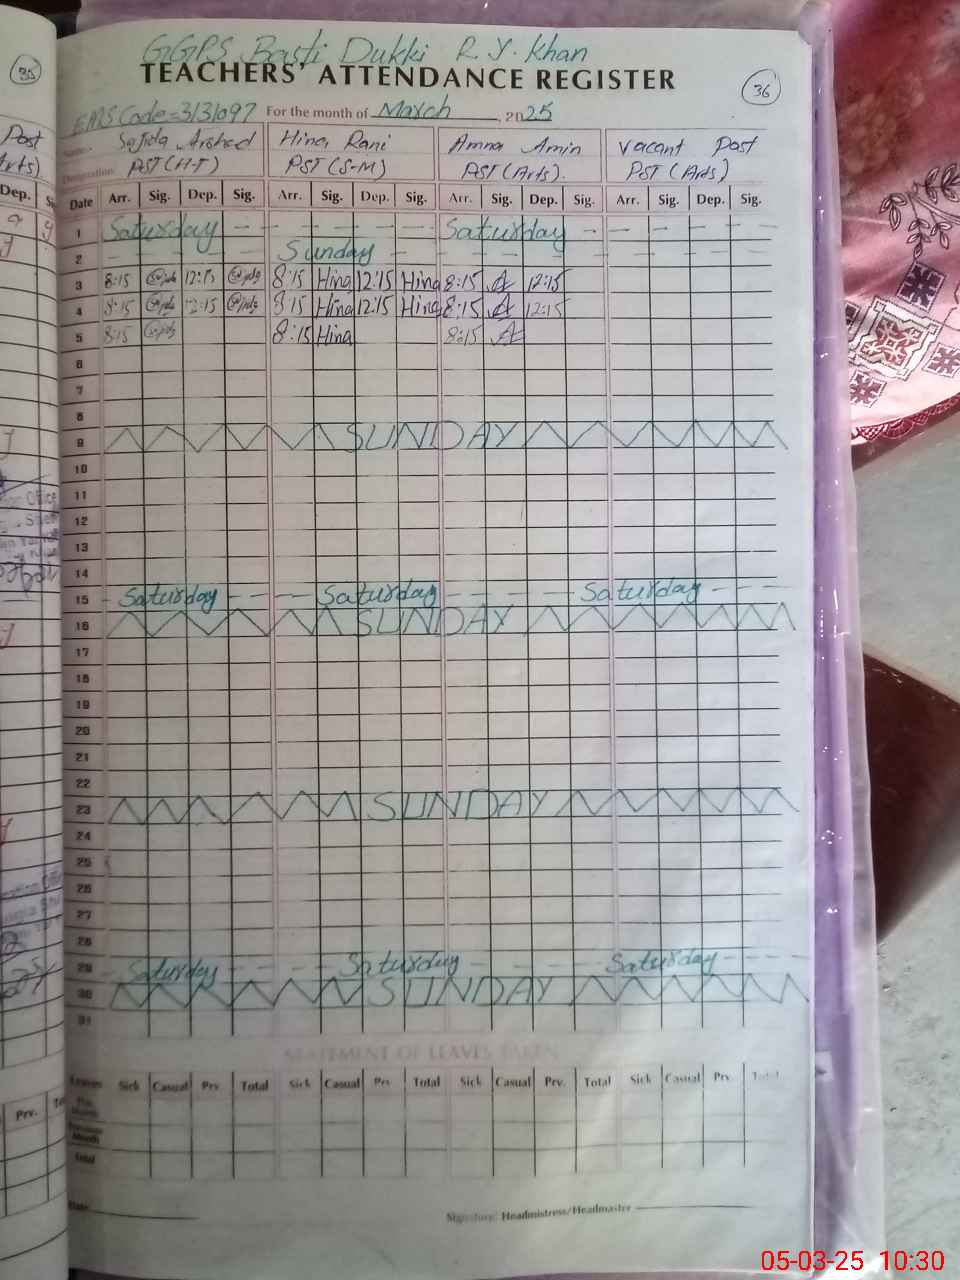 GGPS Basti Dukki R.Y. Khan
TEACHERS' ATTENDANCE REGISTER
35
36
EMIS Code=3131097 For the month of March, 2025
Name: Sajida Arshad Hina Rani Amna Amin Vacant Post
Designation: PST (H-T) PST (S-M) PST (Arts). PST (Arts)
Date Arr. Sig. Dep. Sig. Arr. Sig. Dep. Sig. Arr. Sig. Dep. Sig. Arr. Sig. Dep. Sig.
1 Saturday Saturday
2 Sunday
3 8:15 Sajida 12:15 Sajida 8:15 Hina 12:15 Hina 8:15 12:15
4 8:15 Sajida 12:15 Sajida 8:15 Hina 12:15 Hina 8:15 12:15
5 8:15 Sajida 8:15 Hina 8:15
6
7
8
9 SUNDAY
10
11
12
13
14
15 Saturday Saturday Saturday
16 SUNDAY
17
18
19
20
21
22
23 SUNDAY
24
25
26
27
28
29 Saturday Saturday Saturday
30 SUNDAY
31
STATEMENT OF LEAVES TAKEN
Leaves Sick Casual Prv. Total Sick Casual Prv. Total Sick Casual Prv. Total Sick Casual Prv. Total
This Month
Previous Month
Total
Date
Signature: Headmistress/Headmaster
Post
Dep.
Prv.
05-03-25 10:30